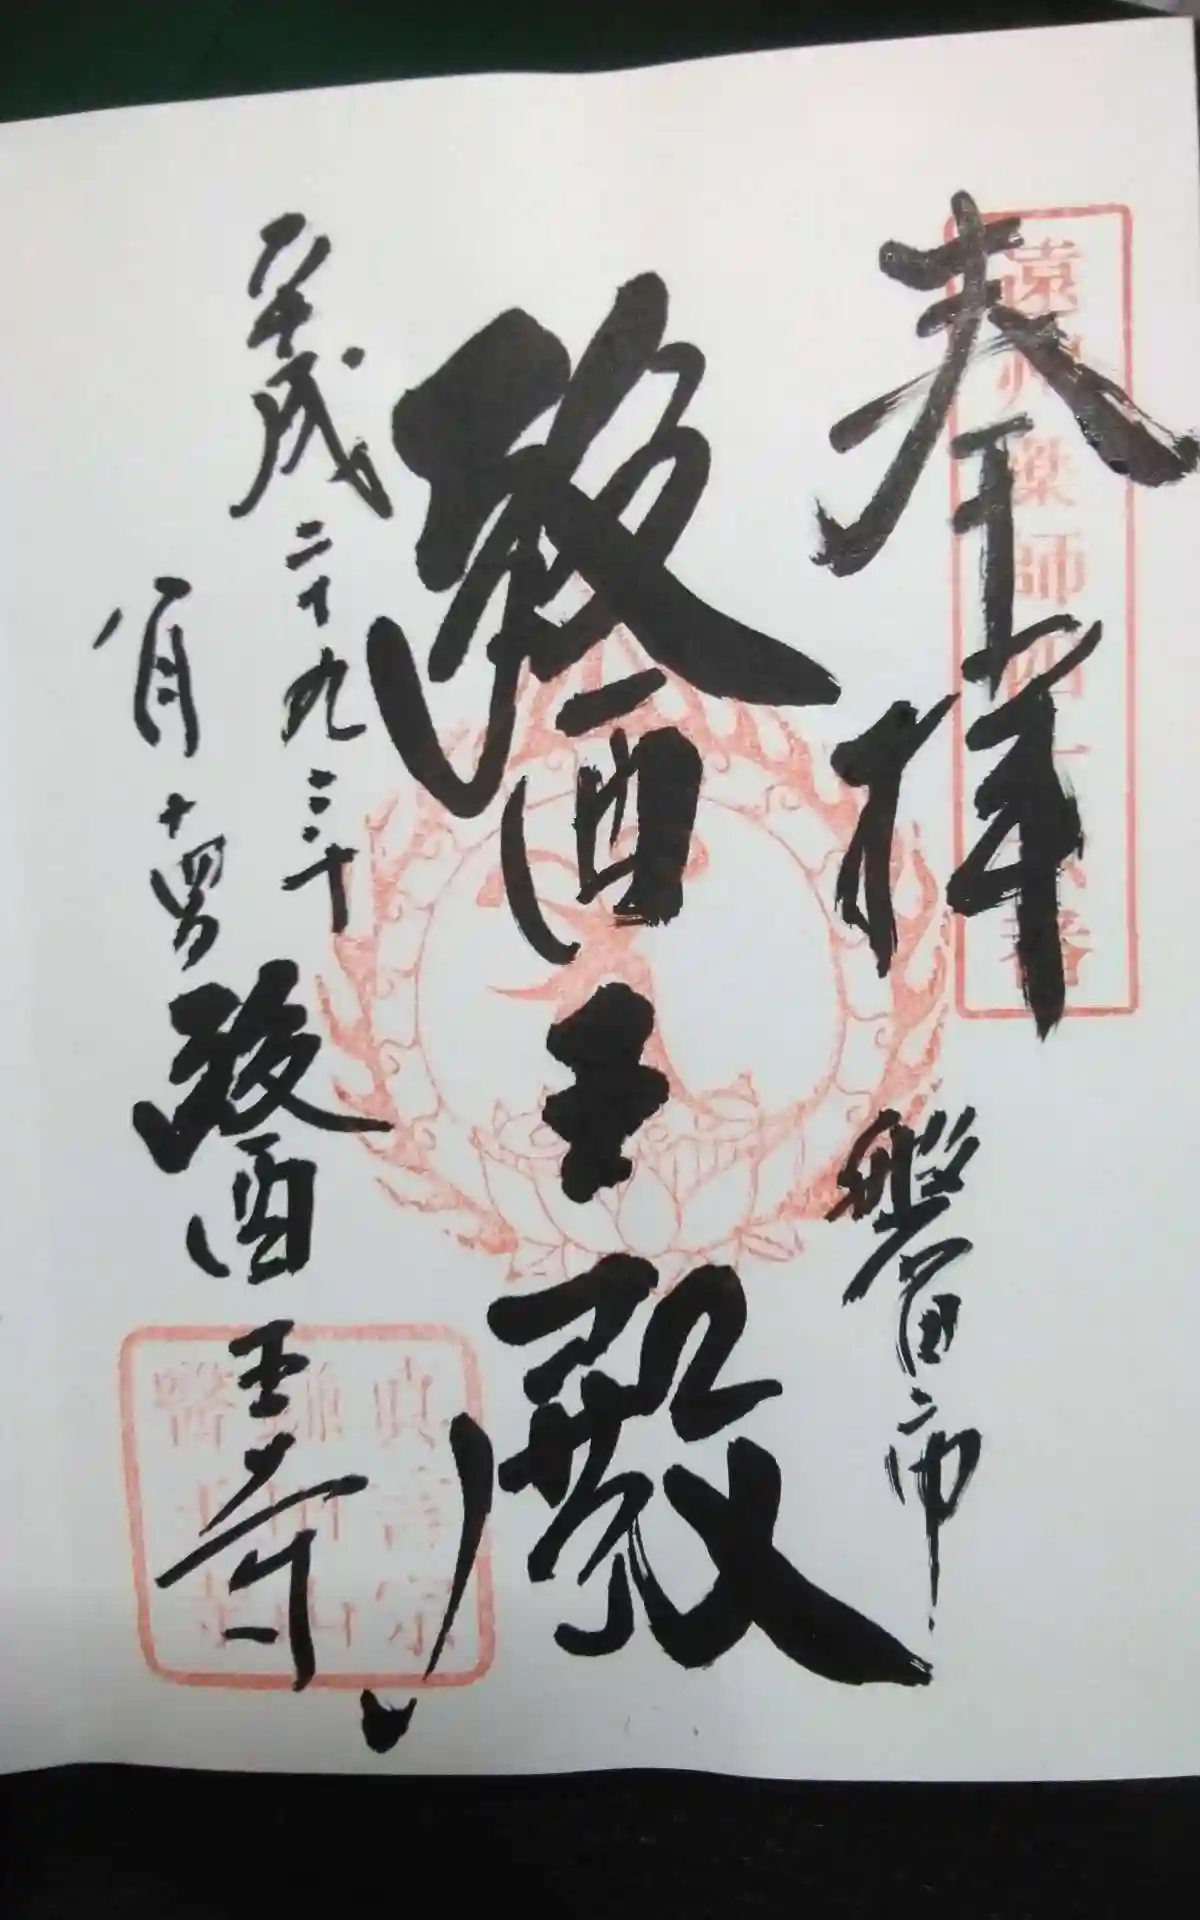 奉拝
遠州薬師四十八番
磐田市
醫王殿
平成二十九年
八月十四日
醫王寺
真言宗
鎌田山
醫王寺